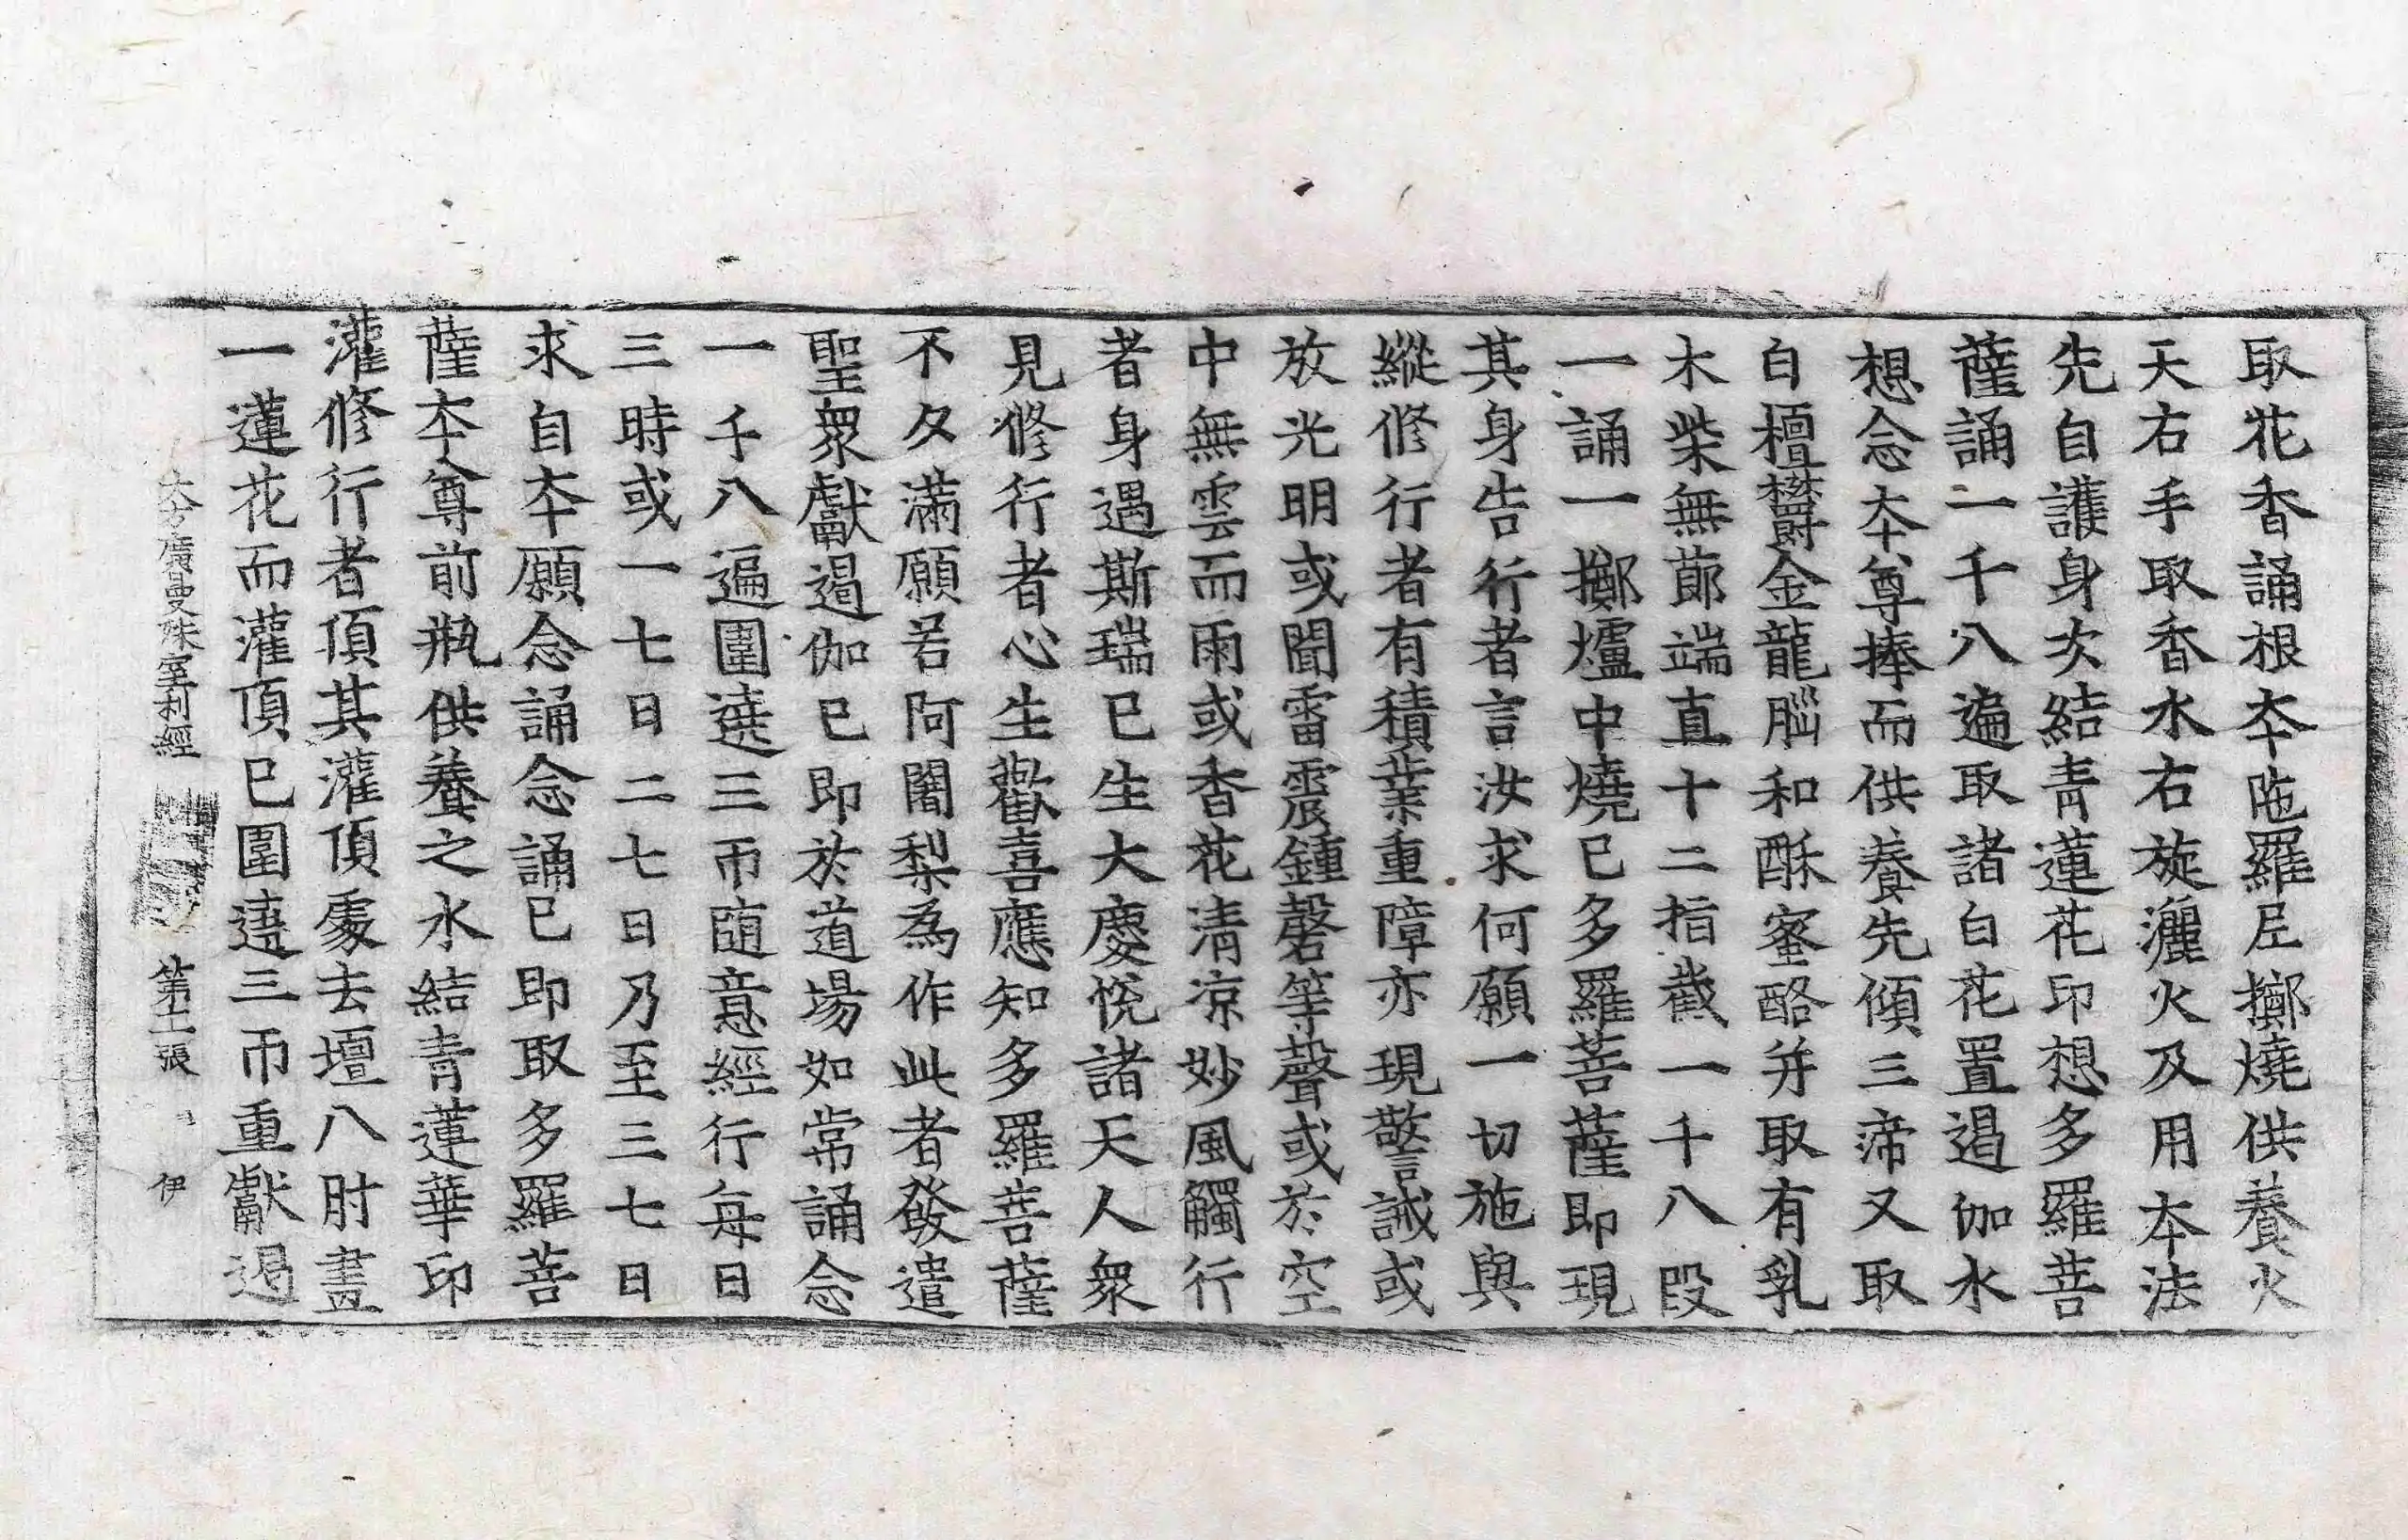 取花香誦根本陁羅尼擲燒供養火
天右手取香水右旋灑火及用本法
先自護身次結青蓮花印想多羅菩
薩誦一千八遍取諸白花置遏伽水
想念本尊捧而供養先傾三渧又取
白檀欝金龍腦和酥蜜酪并取有乳
木柴無莭端直十二指截一千八段
一誦一擲爐中燒已多羅菩薩即現
其身告行者言汝求何願一切施與
縱修行者有積業重障亦現警誡或
放光明或聞雷震鍾磬等聲或於空
中無雲而雨或香花清凉妙風觸行
者身遇斯瑞已生大慶悅諸天人衆
見修行者心生歡喜應知多羅菩薩
不久滿願若阿闍梨為作此者發遣
聖衆獻遏伽已即於道場如常誦念
一千八遍圍遶三帀随意經行每日
三時或一七日二七日乃至三七日
求自本願念誦念誦已即取多羅菩
薩本尊前瓶供養之水結青蓮華印
灌修行者頂其灌頂處去壇八肘畫
一蓮花而灌頂已圍遶三帀重獻遏
大方廣曼殊室利經 第十二張 伊